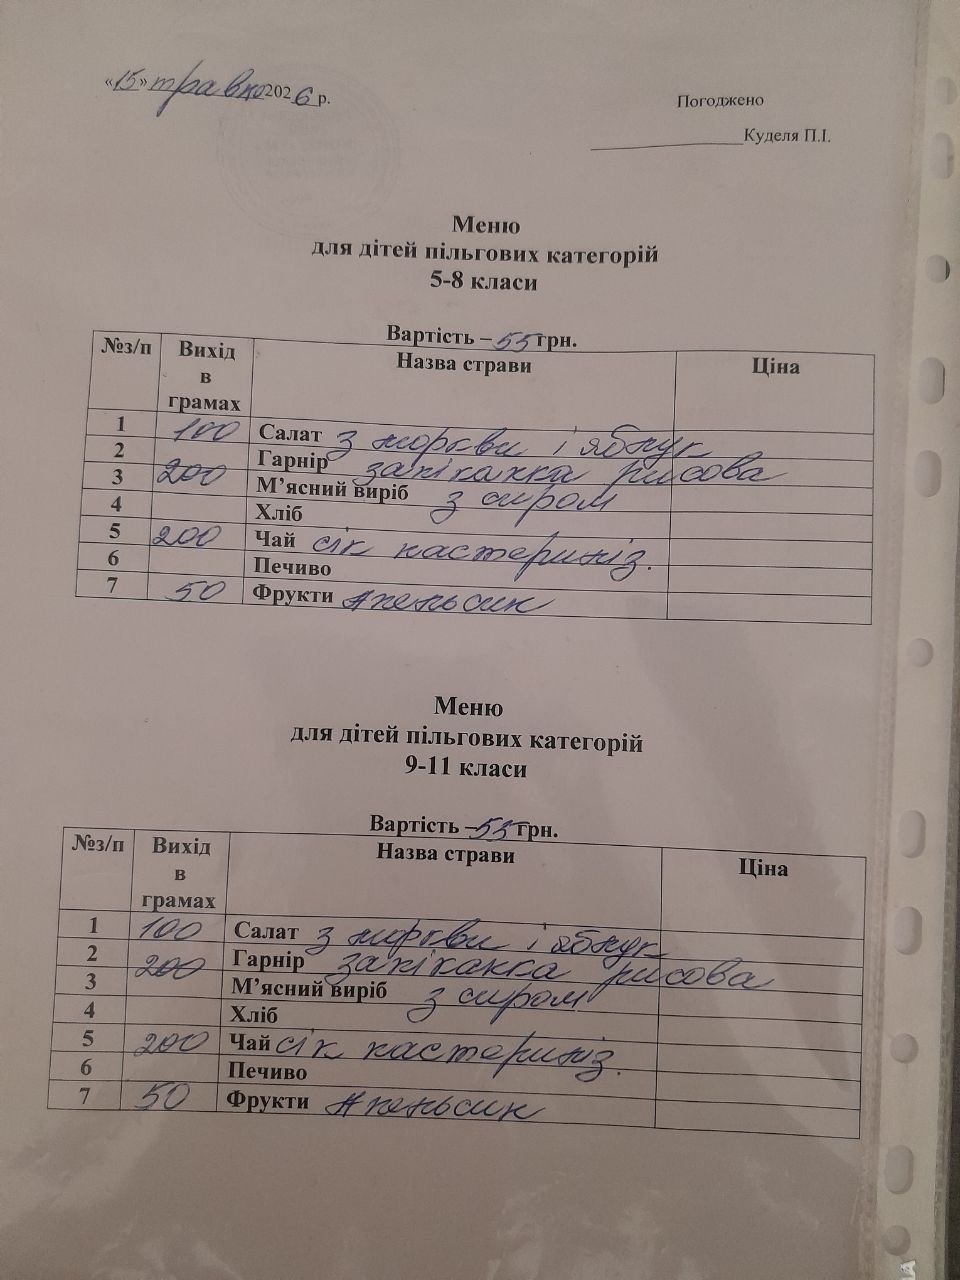 «15» травня 2026 р.
Погоджено
Куделя П.І.
Меню
для дітей пільгових категорій
5-8 класи
Вартість – 55 грн.
№з/п Вихід в грамах Назва страви Ціна
1 100 Салат з моркви і яблук
2 Гарнір запіканка рисова
3 200 М’ясний виріб з сиром
4 Хліб
5 200 Чай сік пастериніз.
6 Печиво
7 50 Фрукти Апельсин
Меню
для дітей пільгових категорій
9-11 класи
Вартість – 55 грн.
№з/п Вихід в грамах Назва страви Ціна
1 100 Салат з моркви і яблук
2 200 Гарнір запіканка рисова
3 М’ясний виріб з сиром
4 Хліб
5 200 Чай сік пастериніз.
6 Печиво
7 50 Фрукти Апельсин